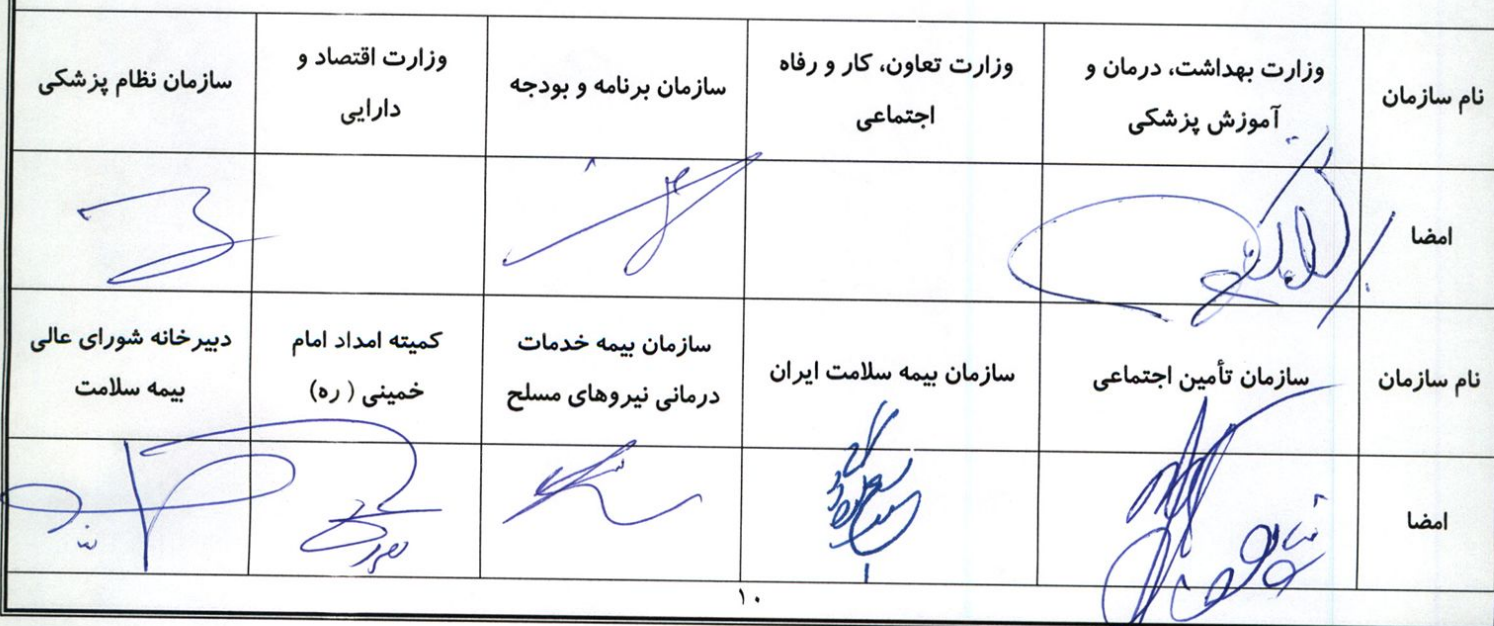 نام سازمان
وزارت بهداشت، درمان و
آموزش پزشکی
وزارت تعاون، کار و رفاه
اجتماعی
سازمان برنامه و بودجه
وزارت اقتصاد و
دارایی
سازمان نظام پزشکی
امضا
نام سازمان
سازمان تأمین اجتماعی
سازمان بیمه سلامت ایران
سازمان بیمه خدمات
درمانی نیروهای مسلح
کمیته امداد امام
خمینی ( ره)
دبیرخانه شورای عالی
بیمه سلامت
امضا
۱۰